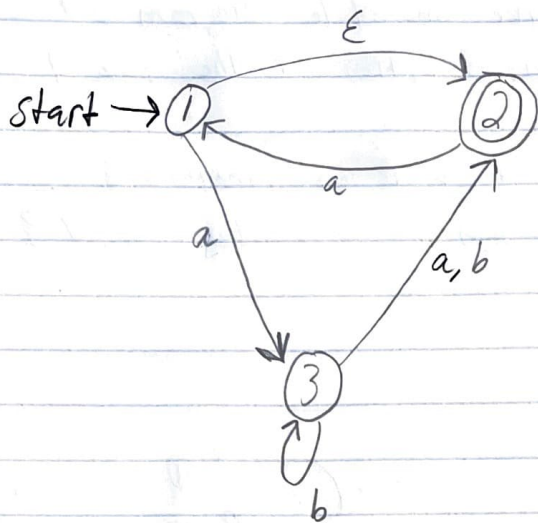 ε
start 1 2
a
a
a, b
3
b